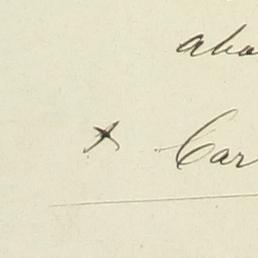 abo
x Car